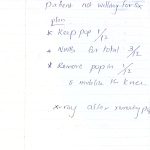 patient not willing for Sx
plan
* Keep pop 1/12
* NWB for total 3/12
* Remove pop in 1/12
& mobilize the knee
x-ray after removing pop